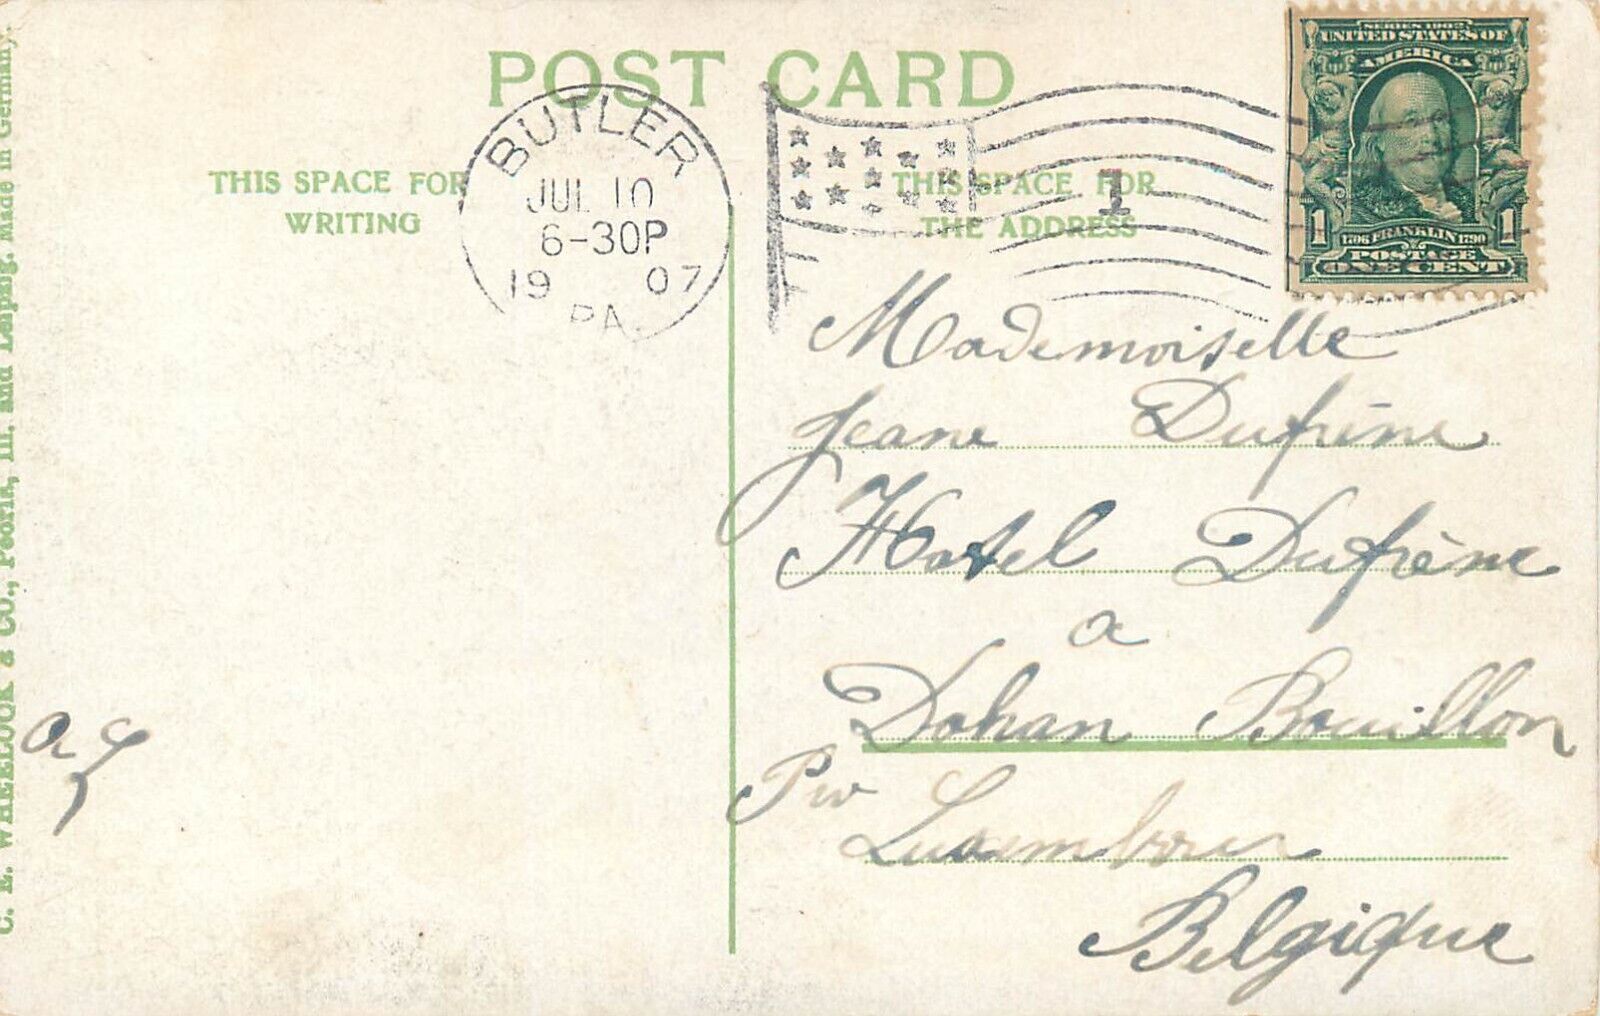 POST CARD
THIS SPACE FOR
WRITING
THIS SPACE FOR
THE ADDRESS
BUTLER
JUL 10
6-30P
19 07
PA.
1
SERIES 1902
UNITED STATES OF
AMERICA
1 1706 FRANKLIN 1790 1
POSTAGE
ONE CENT
Mademoiselle
Jeane Dufrêne
Hotel Dufrêne
a
Dohan Bouillon
Luxembour
Belgique
C. E. WHEELOCK & CO., Peoria, Ill. and Leipzig. Made in Germany.